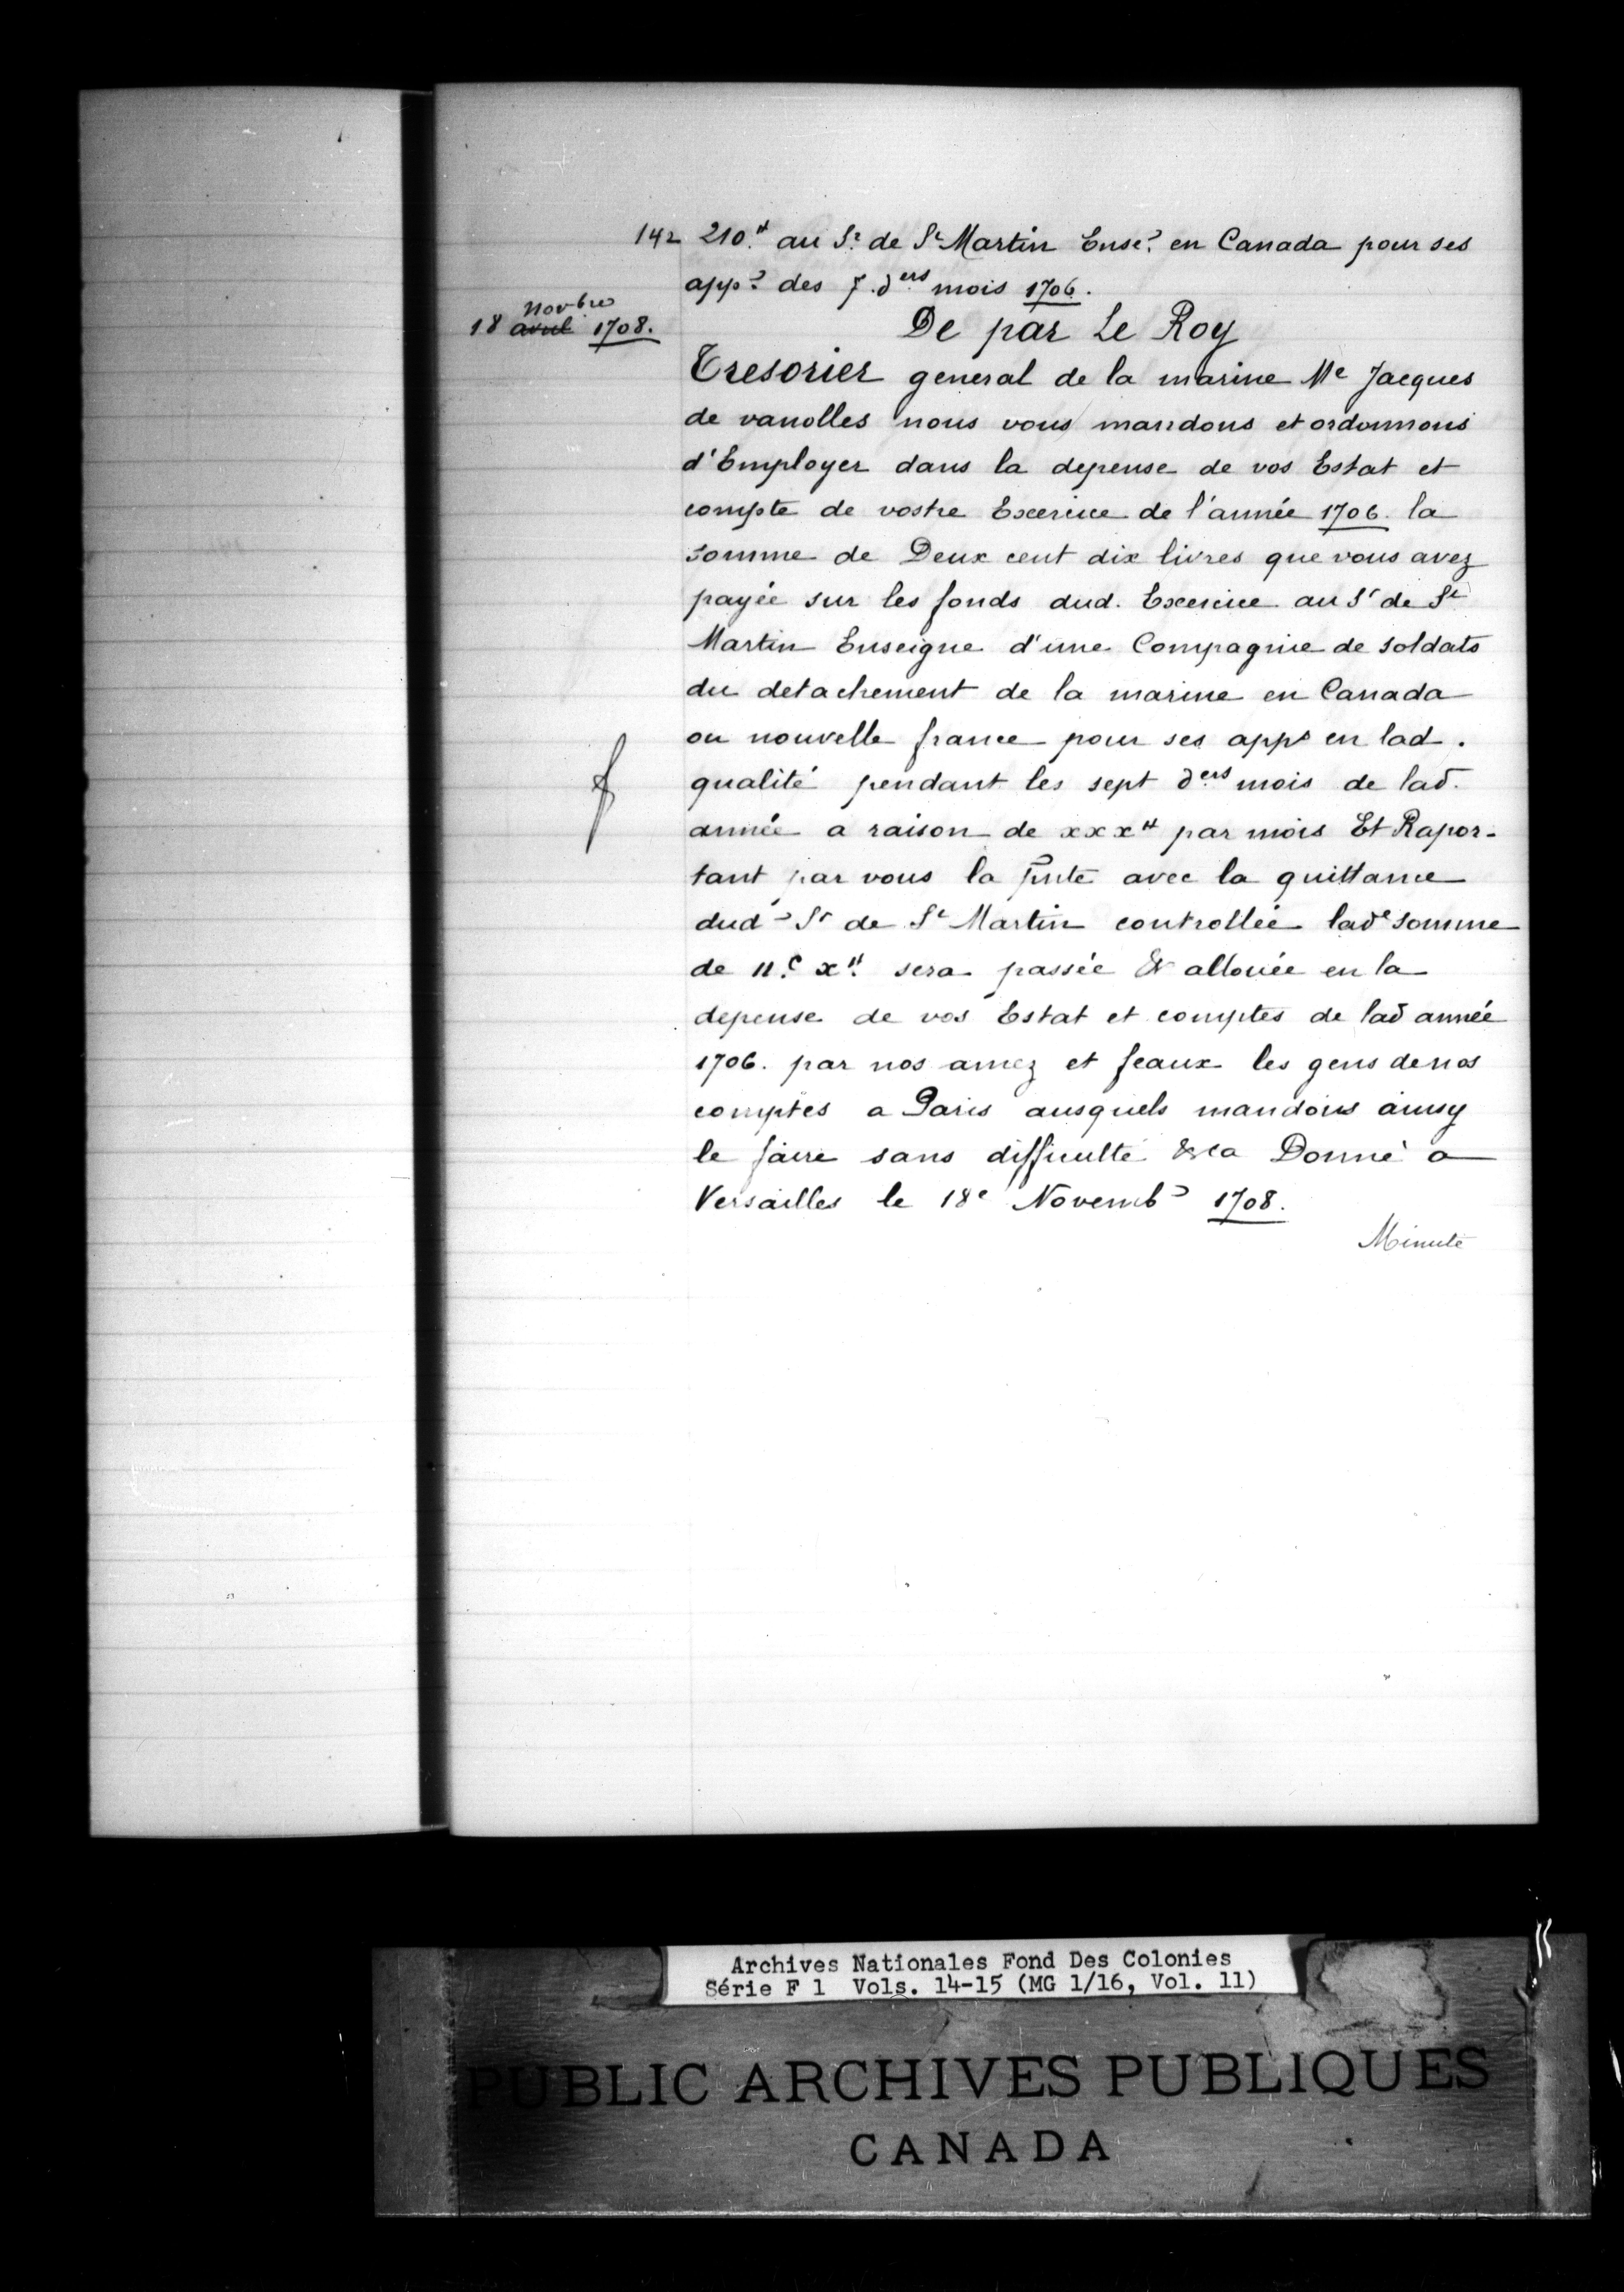 142 210.ᵗᵗ au Sʳ. de Sᵗ Martin Enseˀ. en Canada pour ses
appˀ. des 7. dᵉʳˢ mois 1706.
Novbre
18 ~~avril~~ 1708.
De par Le Roy
Tresorier general de la marine Mᵉ Jacques
de vanolles nous vous mandons et ordonnons
d'Employer dans la depense de vos Estat et
compte de vostre Exercice de l'année 1706. la
somme de Deux cent dix livres que vous avez
payée sur les fonds dud. Exercice au Sʳ de Sᵗ
Martin Enseigne d'une Compagnie de soldats
du detachement de la marine en Canada
ou nouvelle france pour ses appˢ en lad.
qualité pendant les sept dᵉʳˢ mois de lad.
année a raison de xxxᵗᵗ par mois Et Rapor-
tant par vous la pñte avec la quittance
dudˀ Sʳ de Sᵗ Martin controllée ladᵉ somme
de II.ᶜ xᵗᵗ. sera passée & allouée en la
depense de vos Estat et comptes de lad année
1706. par nos amez et feaux les gens de nos
comptes a Paris ausquels mandons ainsy
le faire sans difficulté &ca Donné a
Versailles le 18ᵉ Novembˀ 1708.
Minute
Archives Nationales Fond Des Colonies
Série F 1 Vols. 14-15 (MG 1/16, Vol. 11)
PUBLIC ARCHIVES PUBLIQUES
CANADA